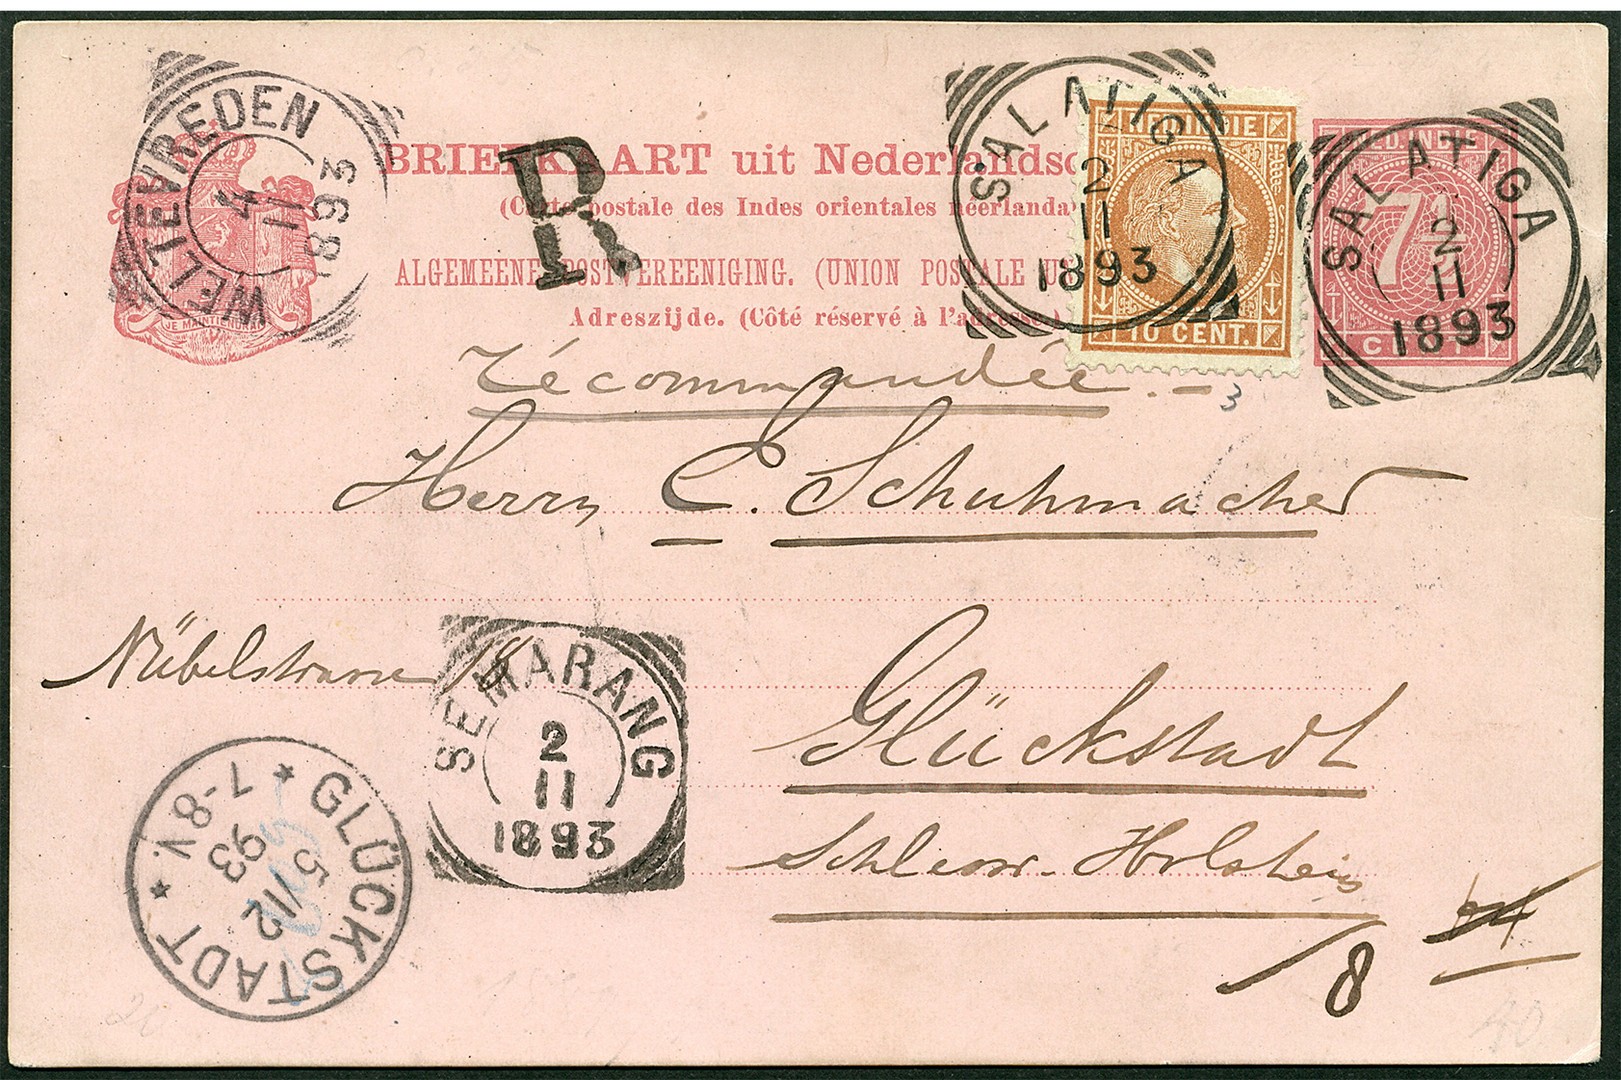 BRIEFKAART uit Nederlandsc
(Carte postale des Indes orientales néerlanda
ALGEMEENE POSTVEREENIGING. (UNION POSTALE U
Adreszijde. (Côté réservé à l'adresse.)
JE MAINTIENDRAI
WELTEVREDEN
4
11
1893
R
NED. INDIE
10 CENT.
SALATIGA
2
11
1893
NED. INDIE
7½
CENT
SALATIGA
2
11
1893
récommandée.
3
Herrn C. Schuhmacher
Nübelstrasse 18
Glückstadt
Schlesw. Holstein
SEMARANG
2
11
1893
GLÜCKSTADT
5/12
93
7-8V.
8
40